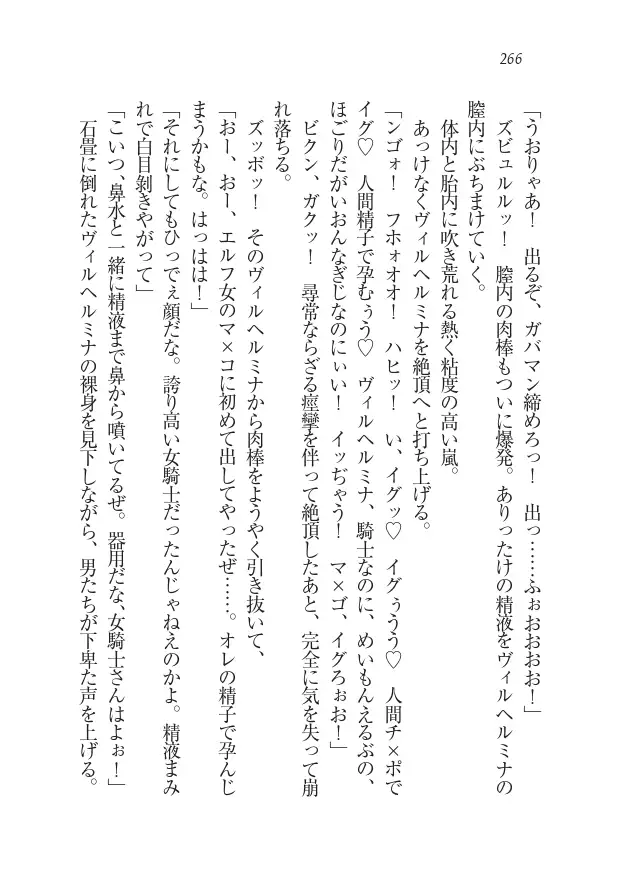 266
「うおりゃあ！　出るぞ、ガバマン締めろっ！　出っ……ふぉおおおお！」
　ズビュルルッ！　膣内の肉棒もついに爆発。ありったけの精液をヴィルヘルミナの
膣内にぶちまけていく。
　体内と胎内に吹き荒れる熱く粘度の高い嵐。
　あっけなくヴィルヘルミナを絶頂へと打ち上げる。
「ンゴォ！　フホォオオ！　ハヒッ！　い、イグッ♡　イグぅうう♡　人間チ×ポで
イグ♡　人間精子で孕むぅう♡　ヴィルヘルミナ、騎士なのに、めいもんえるぶの、
ほごりだがいおんなぎじなのにぃい！　イッぢゃう！　マ×ゴ、イグろぉお！」
　ビクン、ガクッ！　尋常ならざる痙攣を伴って絶頂したあと、完全に気を失って崩
れ落ちる。
　ズッボッ！　そのヴィルヘルミナから肉棒をようやく引き抜いて、
「おー、おー、エルフ女のマ×コに初めて出してやったぜ……。オレの精子で孕んじ
まうかもな。はっはは！」
「それにしてもひっでぇ顔だな。誇り高い女騎士だったんじゃねえのかよ。精液まみ
れで白目剝きやがって」
「こいつ、鼻水と一緒に精液まで鼻から噴いてるぜ。器用だな、女騎士さんはよぉ！」
　石畳に倒れたヴィルヘルミナの裸身を見下しながら、男たちが下卑た声を上げる。